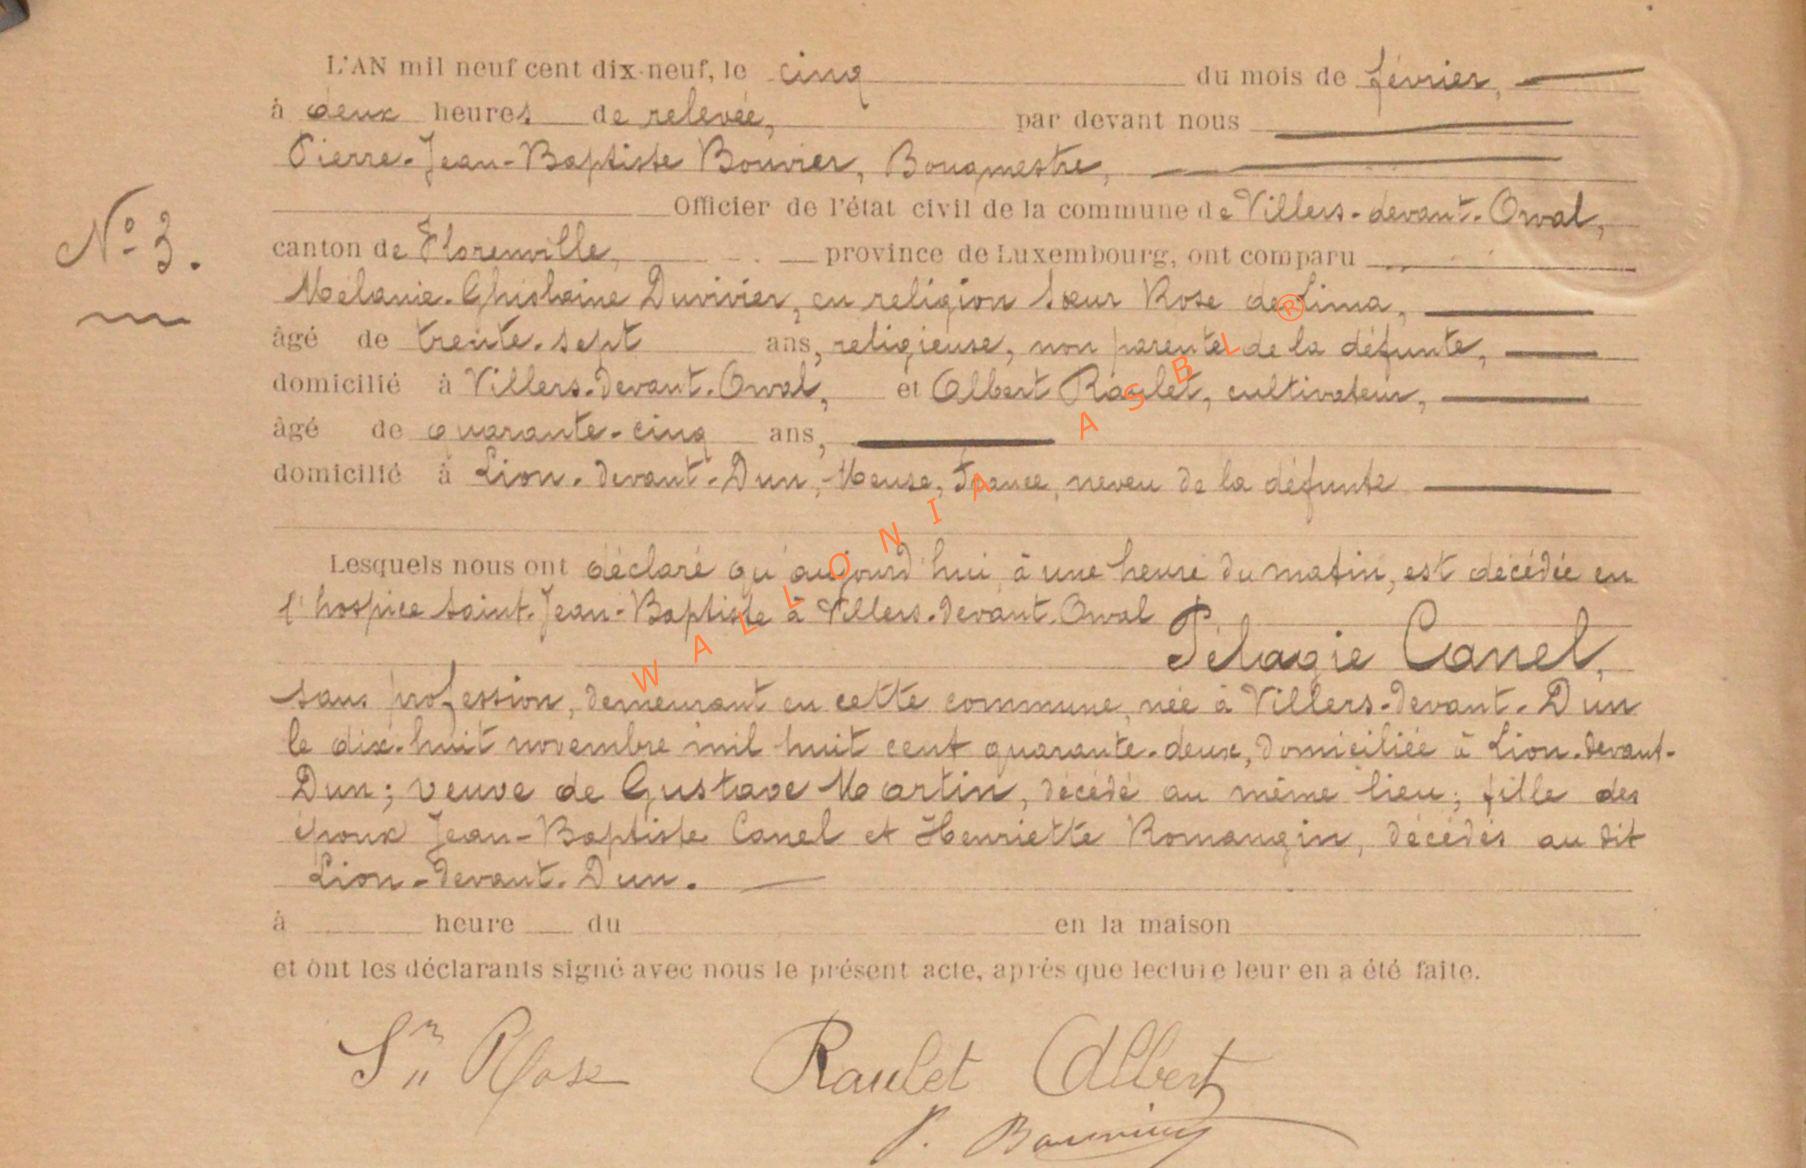 L'AN mil neuf cent dix-neuf, le cinq du mois de février,
à deux heures de relevée, par devant nous
Pierre-Jean-Baptiste Bouvier, Bourgmestre,
Officier de l'état civil de la commune de Villers-devant-Orval,
N° 3.
canton de Florenville, province de Luxembourg, ont comparu
Mélanie-Ghislaine Duvivier, en religion Sœur Rose de Lima,
âgé de trente-sept ans, religieuse, non parente de la défunte,
domicilié à Villers-devant-Orval, et Albert Raulet, cultivateur,
âgé de quarante-cinq ans,
domicilié à Lion-devant-Dun, Meuse, France, neveu de la défunte
Lesquels nous ont déclaré qu'aujourd'hui, à une heure du matin, est décédée en
l'hospice Saint-Jean-Baptiste à Villers-devant-Orval
Pélagie Canel,
sans profession, demeurant en cette commune, née à Villers-devant-Dun
le dix-huit novembre mil huit cent quarante-deux, domiciliée à Lion-devant-
Dun; veuve de Gustave Martin, décédé au même lieu; fille des
époux Jean-Baptiste Canel et Henriette Romangin, décédés au dit
Lion-devant-Dun.
à heure du en la maison
et ont les déclarants signé avec nous le présent acte, après que lecture leur en a été faite.
Sr Rose Raulet Albert
P. Bouvier
WALLONIA ASBL ®